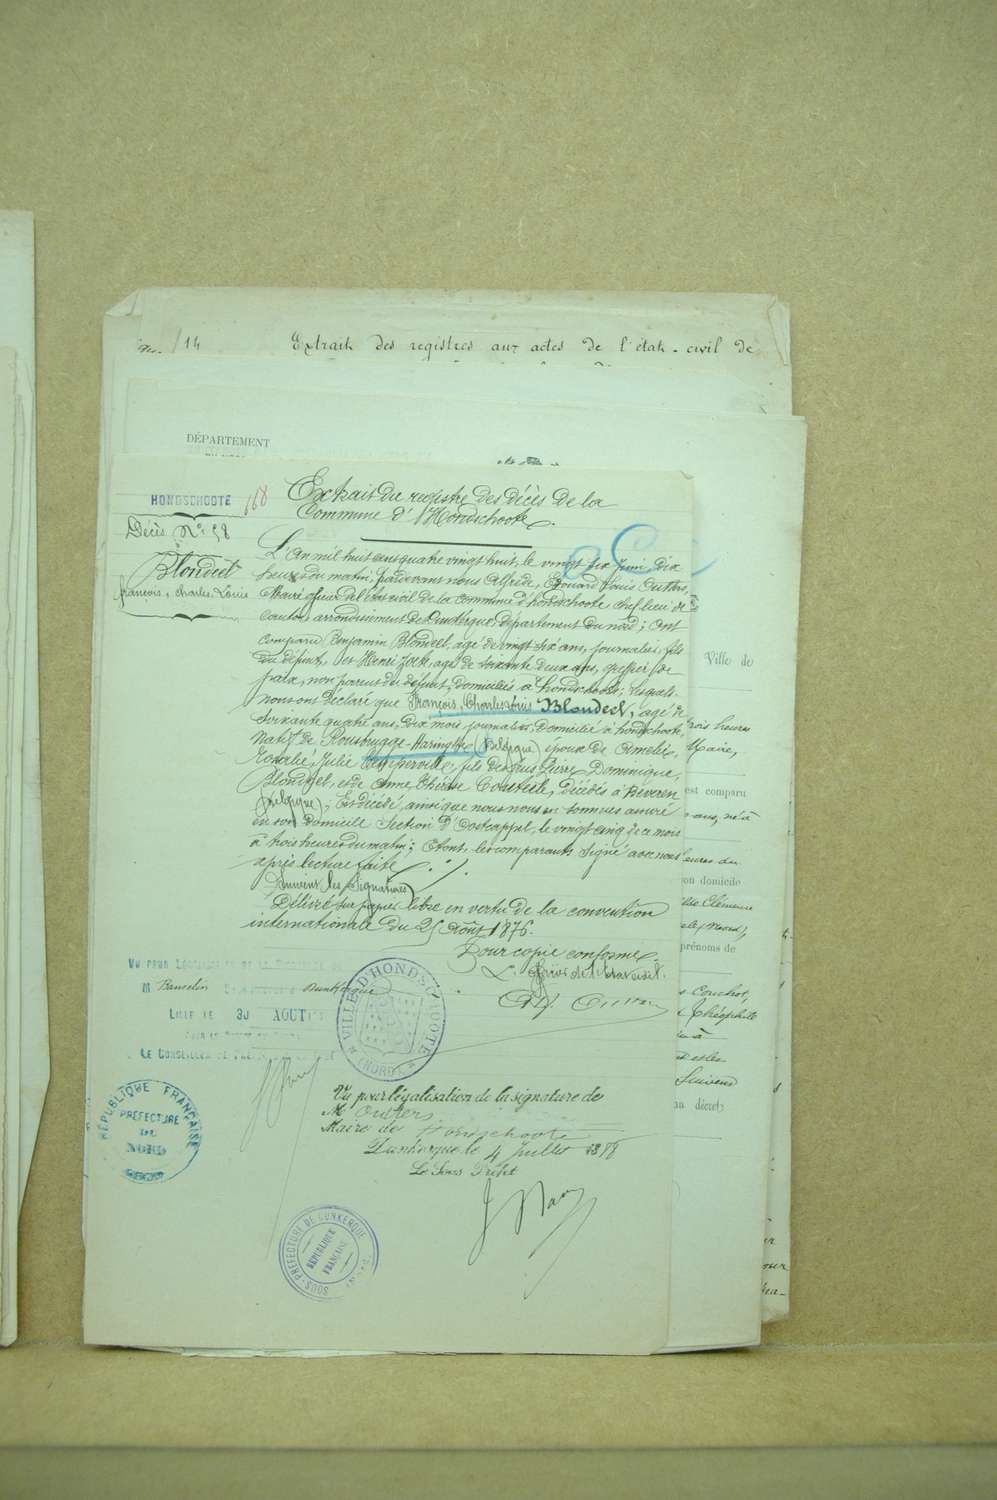 /14 Extrait des registres aux actes de l'état-civil de
DÉPARTEMENT
HONDSCHOOTE 168
Décès N° 58
Blondeel
françois, Charles Louis
Extrait du registre des décès de la
Commune d'Hondschoote.
L'An mil huit cent quatre vingt huit, le vingt six Juin, dix
heures du matin, pardevant nous Alfrède, Edouard Louis Outters,
Maire officier de l'état civil de la commune d'hondschoote chef lieu de
canton, arrondissement de Dunkerque, département du nord; Ont
comparu Benjamin Blondeel, âgé de vingt six ans, journalier, fils
du défunt, et Henri, âgé de soixante deux ans, greffier de
paix, non parent du défunt, domiciliés à hondschoote; lesquels
nous ont déclaré que François, Charles Louis Blondeel, âgé de
soixante quatre ans, dix mois journalier, domicilié à hondschoote,
natif de Rousbrugge-Haringhe (Belgique) époux de Amélie,
Rosalie, Julie, fils de feus Pierre Dominique,
Blondeel, et de Anne, Thérèse, décédés à Beveren
(Belgique); Est décédé, ainsi que nous nous en sommes assuré
en son domicile Section d'Oostcappel, le vingt cinq de ce mois
à trois heures du matin; Et ont les comparants signé avec nous
après lecture faite
(Suivent les Signatures)
Délivré sur papier libre en vertu de la convention
internationale du 25 Août 1876.
Pour copie conforme
L'officier de l'état civil.
VU POUR LÉGALISATION DE LA SIGNATURE DE
M Dunkerque
LILLE LE 30 AOUT
LE CONSEILLER DE PRÉFECTURE
VILLE D'HONDSCHOOTE
(NORD)
RÉPUBLIQUE FRANÇAISE
PRÉFECTURE
DU
NORD
Vu pour légalisation de la signature de
Mr Outters
Maire de Hondschoote
Dunkerque le 4 Juillet 1898
Le Sous Préfet
SOUS-PRÉFECTURE DE DUNKERQUE
RÉPUBLIQUE
FRANÇAISE
Ville de
trois heures
Maire,
est comparu
ans, né à
heures du
son domicile
Clémence
prénoms de
Couchot,
Théophile
Suivent
décret